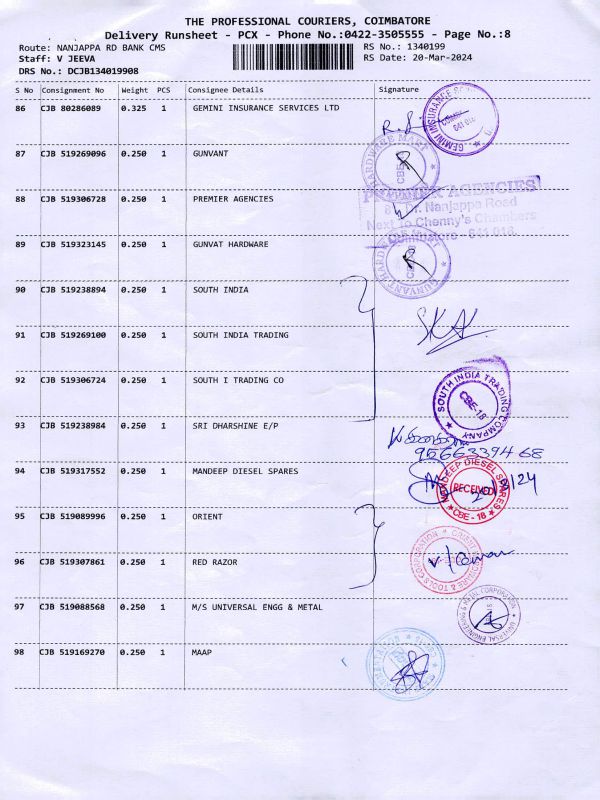 THE PROFESSIONAL COURIERS, COIMBATORE
Delivery Runsheet - PCX - Phone No.:0422-3505555 - Page No.:8
Route: NANJAPPA RD BANK CMS
RS No.: 1340199
Staff: V JEEVA
RS Date: 20-Mar-2024
DRS No.: DCJB134019908
S No Consignment No Weight PCS Consignee Details Signature
86 CJB 80286089 0.325 1 GEMINI INSURANCE SERVICES LTD
GEMINI INSURANCE
641 018
HARDWARE MART
CBE
87 CJB 519269096 0.250 1 GUNVANT
88 CJB 519306728 0.250 1 PREMIER AGENCIES
PREMIER AGENCIES
Dr. Nanjappa Road
Next To Chenny's Chambers
Coimbatore - 641 018.
89 CJB 519323145 0.250 1 GUNVAT HARDWARE
GUNVANT HARDWARE
90 CJB 519238894 0.250 1 SOUTH INDIA
91 CJB 519269100 0.250 1 SOUTH INDIA TRADING
92 CJB 519306724 0.250 1 SOUTH I TRADING CO
SOUTH INDIA TRADING COMPANY
CBE-18
93 CJB 519238984 0.250 1 SRI DHARSHINE E/P
9566339468
94 CJB 519317552 0.250 1 MANDEEP DIESEL SPARES
MANDEEP DIESEL SPARES
RECEIVED
CBE - 18
95 CJB 519089996 0.250 1 ORIENT
96 CJB 519307861 0.250 1 RED RAZOR
& TOOLS CORPORATION
97 CJB 519088568 0.250 1 M/S UNIVERSAL ENGG & METAL
UNIVERSAL ENGINEERING & METAL CORPORATION
98 CJB 519169270 0.250 1 MAAP